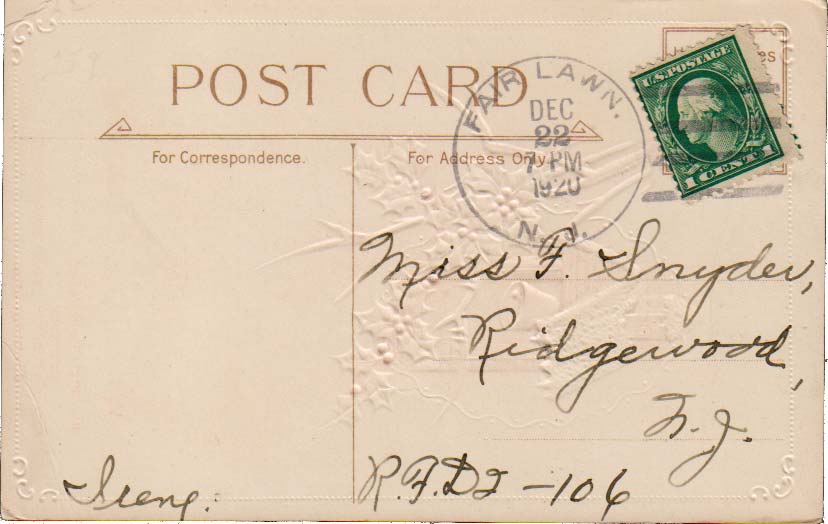 POST CARD
For Correspondence.
For Address Only.
FAIR LAWN.
DEC
22
7 PM
1920
N. J.
U.S. POSTAGE
1 CENT 1
Miss F. Snyder,
Ridgewood,
N.J.
R.F.D
-106
Irene.